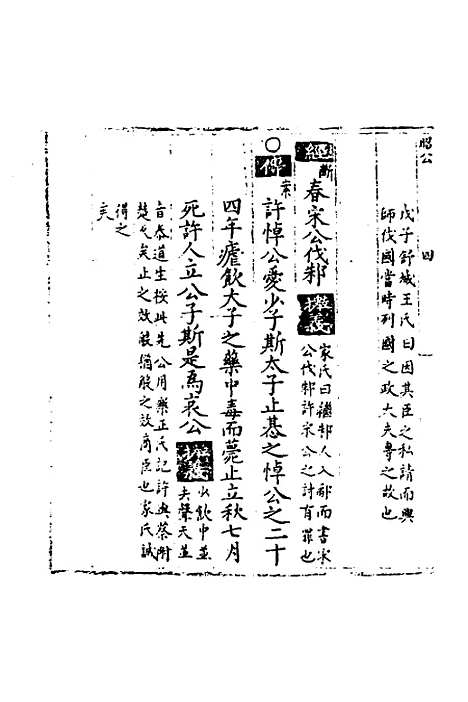 昭公
四
戊子舒城王氏曰因其臣之私請而興
師伐國當時列國之政大夫專之故也
經
斷
春宋公伐邾
家氏曰繼邾人入鄅而書宋
公伐邾許宋公之討有罪也
○傳
案
許悼公愛少子斯太子止惎之悼公之二十
四年瘧飲大子之藥中毒而薨止立秋七月
死許人立公子斯是為哀公
少飲中並
夫聲天並
音泰道生按此先公用樂正氏記許與蔡附
楚久矣止之效般猶般之效商臣也家氏誠
得之
矣